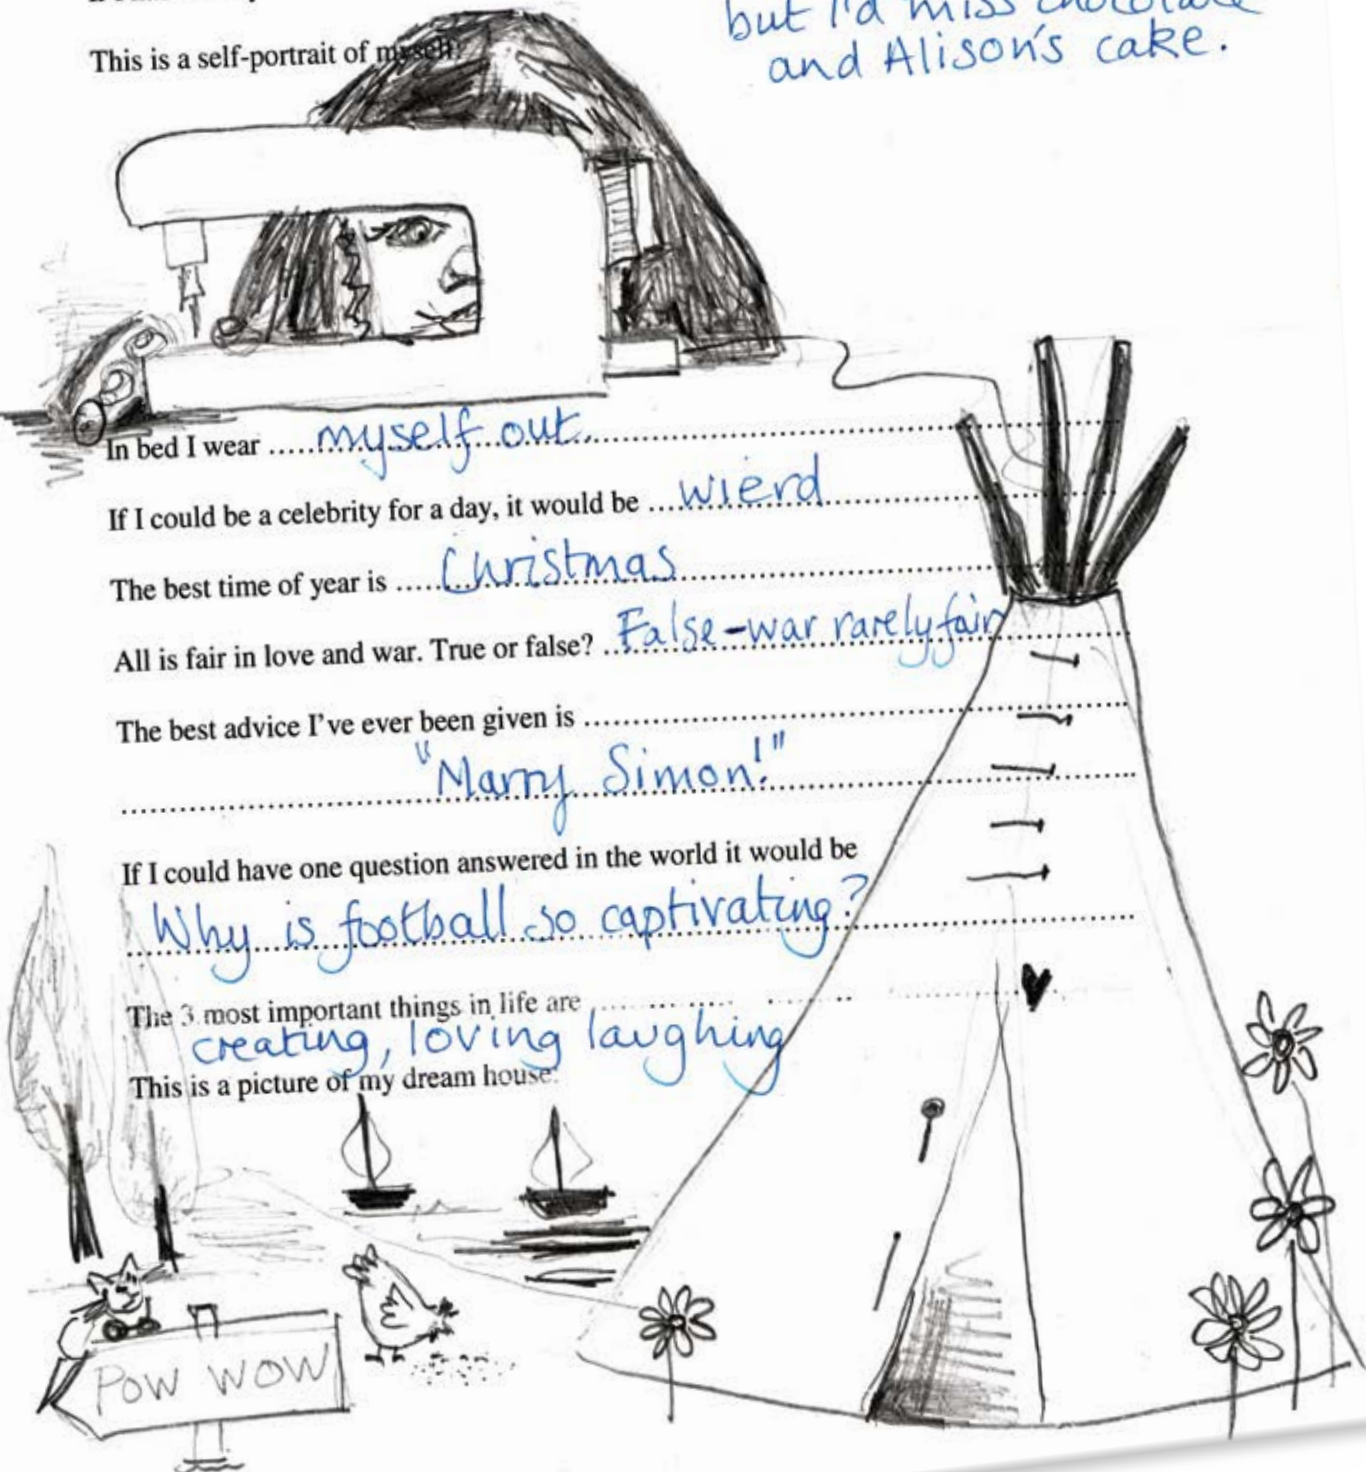 but I'd miss chocolate
and Alison's cake.
This is a self-portrait of myself:
In bed I wear ....myself out.
If I could be a celebrity for a day, it would be ...wierd
The best time of year is ....Christmas
All is fair in love and war. True or false? ...False-war rarely fair
The best advice I've ever been given is
"Marry Simon!"
If I could have one question answered in the world it would be
Why is football so captivating?
The 3 most important things in life are
creating, loving laughing
This is a picture of my dream house:
POW WOW